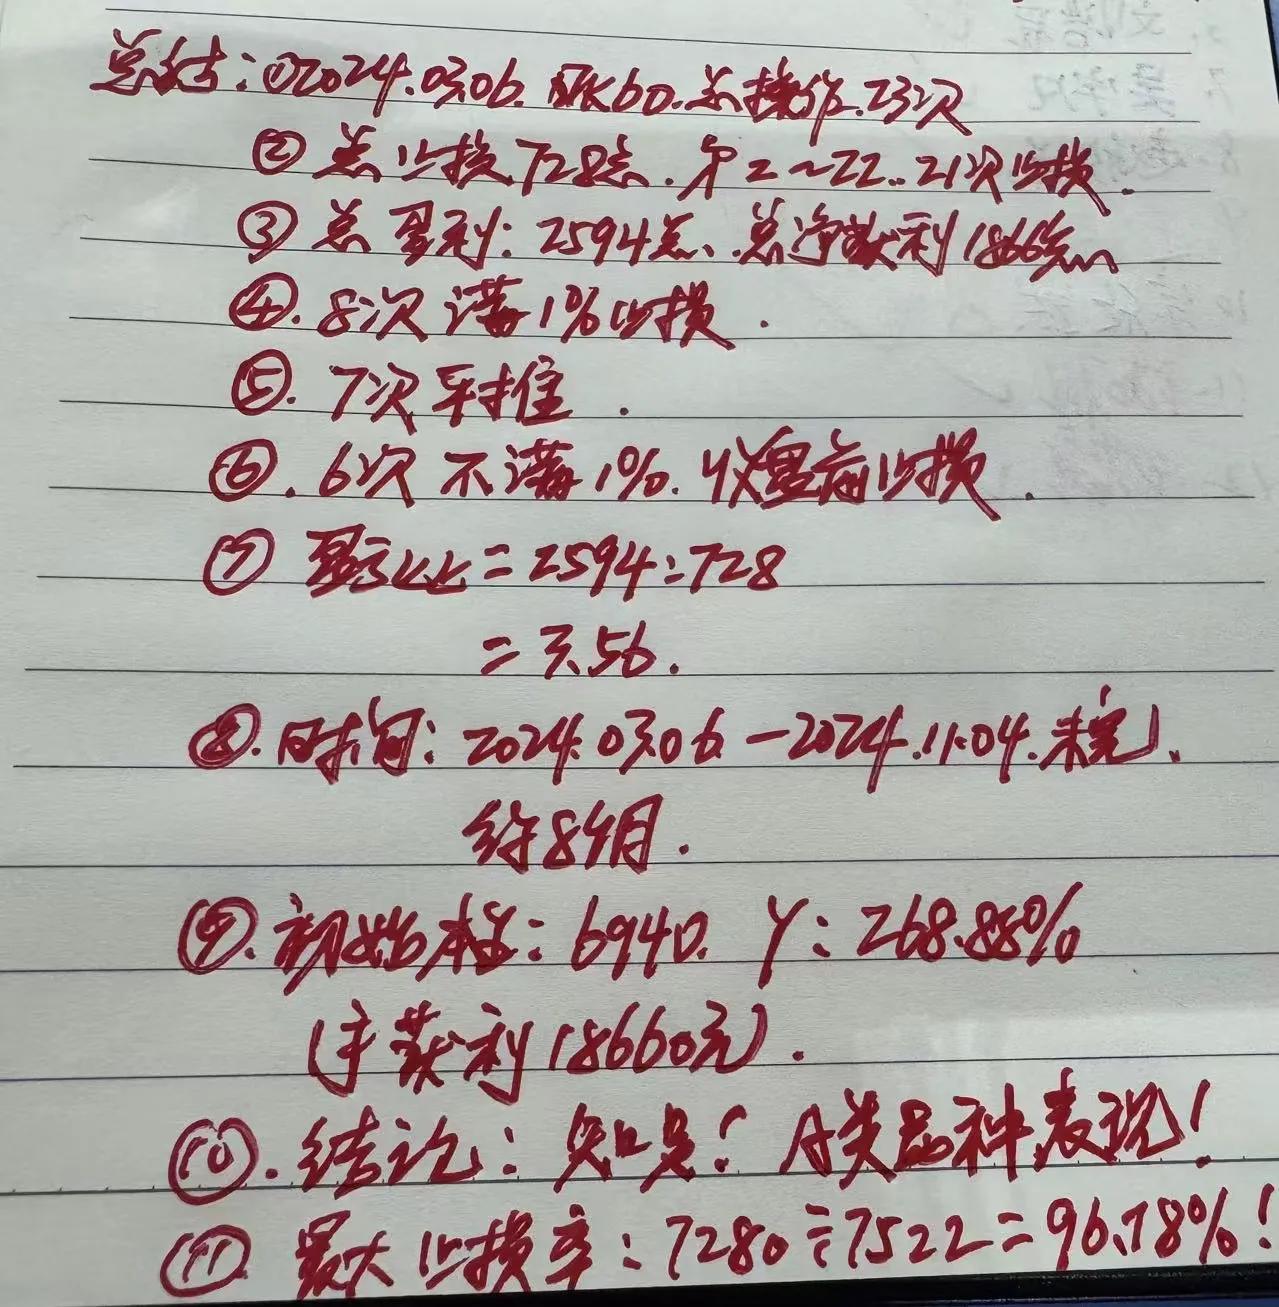 总结:①2024.03.06. 破K60.总操作.23次
② 总止损728点.第2~22..21次止损.
③ 总盈利:2594点、总净获利1866点
④. 8次满1%止损.
⑤. 7次平推.
⑥. 6次不满1%.收盘前止损.
⑦ 盈亏比=2594:728
=3.56.
⑧.时间:2024.03.06.-2024.11.04.未完、
约8个月.
⑨.初始本金:6940. Y:268.88%
(手获利18660元).
⑩.结论:知足!A类品种表现!
⑪ 最大止损率:7280÷7522=96.78%!